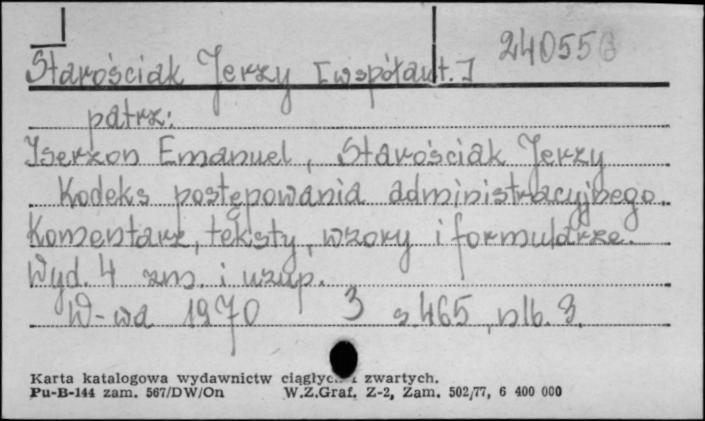 240556
Starościak Jerzy [współaut.]
patrz:
Iserzon Emanuel, Starościak Jerzy
Kodeks postępowania administracyjnego.
Komentarz, teksty, wzory i formularze.
Wyd. 4 zm. i uzup.
W-wa 1970 3 s. 465, nlb. 3.
Karta katalogowa wydawnictw ciągłych i zwartych.
Pu-B-144 zam. 567/DW/On W.Z.Graf. Z-2, Zam. 502/77, 6 400 000